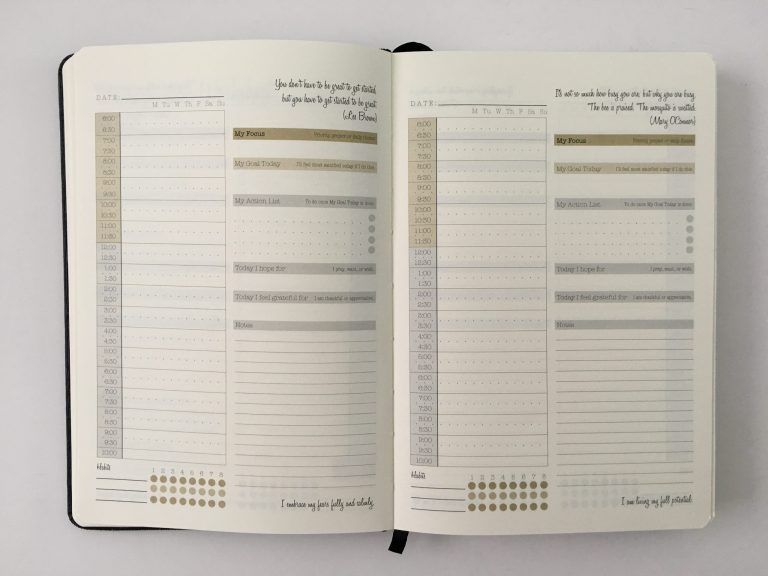 DATE:
M Tu W Th F Sa Su
6:00
6:30
7:00
7:30
8:00
8:30
9:00
9:30
10:00
10:30
11:00
11:30
12:00
12:30
1:00
1:30
2:00
2:30
3:00
3:30
4:00
4:30
5:00
5:30
6:00
6:30
7:00
7:30
8:00
8:30
9:00
9:30
10:00
Habits
1 2 3 4 5 6 7 8
You don't have to be great to get started,
but you have to get started to be great.
(Les Brown)
My Focus Priority, project or daily theme.
My Goal Today I'll feel most satisfied today if I do this.
My Action List To do once My Goal Today is done.
Today I hope for I pray, want, or wish.
Today I feel grateful for I am thankful or appreciative.
Notes
I embrace my fears fully and calmly.
DATE:
M Tu W Th F Sa Su
6:00
6:30
7:00
7:30
8:00
8:30
9:00
9:30
10:00
10:30
11:00
11:30
12:00
12:30
1:00
1:30
2:00
2:30
3:00
3:30
4:00
4:30
5:00
5:30
6:00
6:30
7:00
7:30
8:00
8:30
9:00
9:30
10:00
Habits
1 2 3 4 5 6 7 8
It's not so much how busy you are, but why you are busy.
The bee is praised. The mosquito is swatted.
(Mary O'Connor)
My Focus Priority, project or daily theme.
My Goal Today I'll feel most satisfied today if I do this.
My Action List To do once My Goal Today is done.
Today I hope for I pray, want, or wish.
Today I feel grateful for I am thankful or appreciative.
Notes
I am living my full potential.